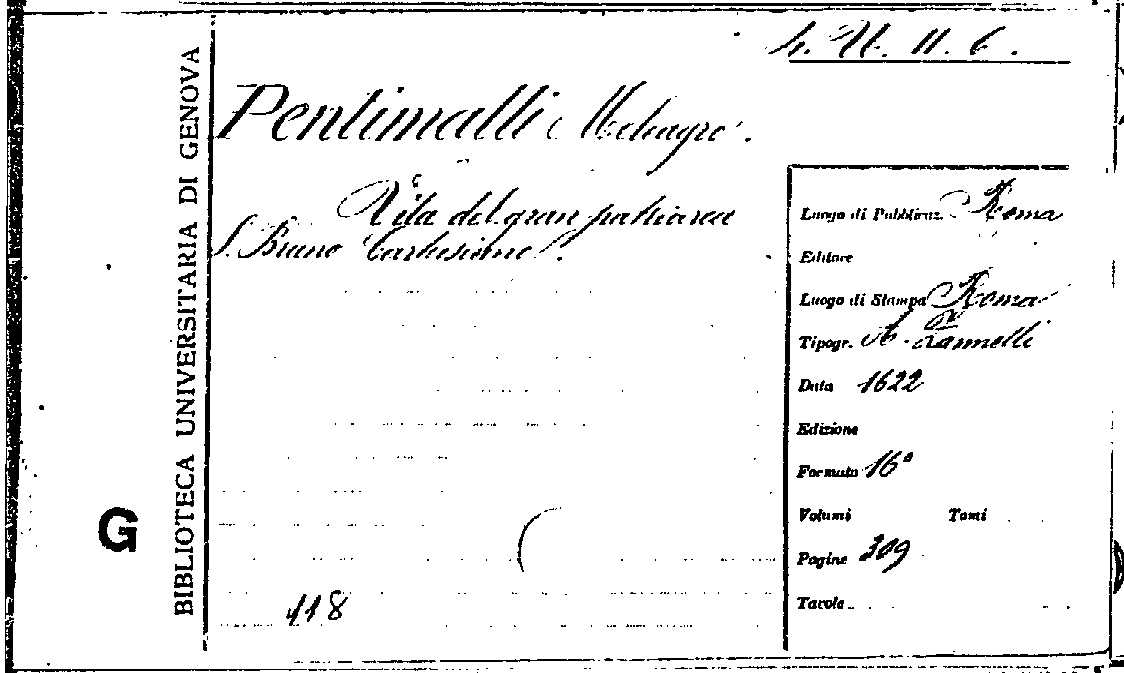 4. U. 11. 6.
Pentimalli Meleagro.
Vita del gran patriarca
S. Bruno Cartusiano.
118
BIBLIOTECA UNIVERSITARIA DI GENOVA
G
Luogo di Pubblicaz. Roma
Editore
Luogo di Stampa Roma
Tipogr. A. Zannetti
Data 1622
Edizione
Formato 16°
Volumi Tomi
Pagine 309
Tavole